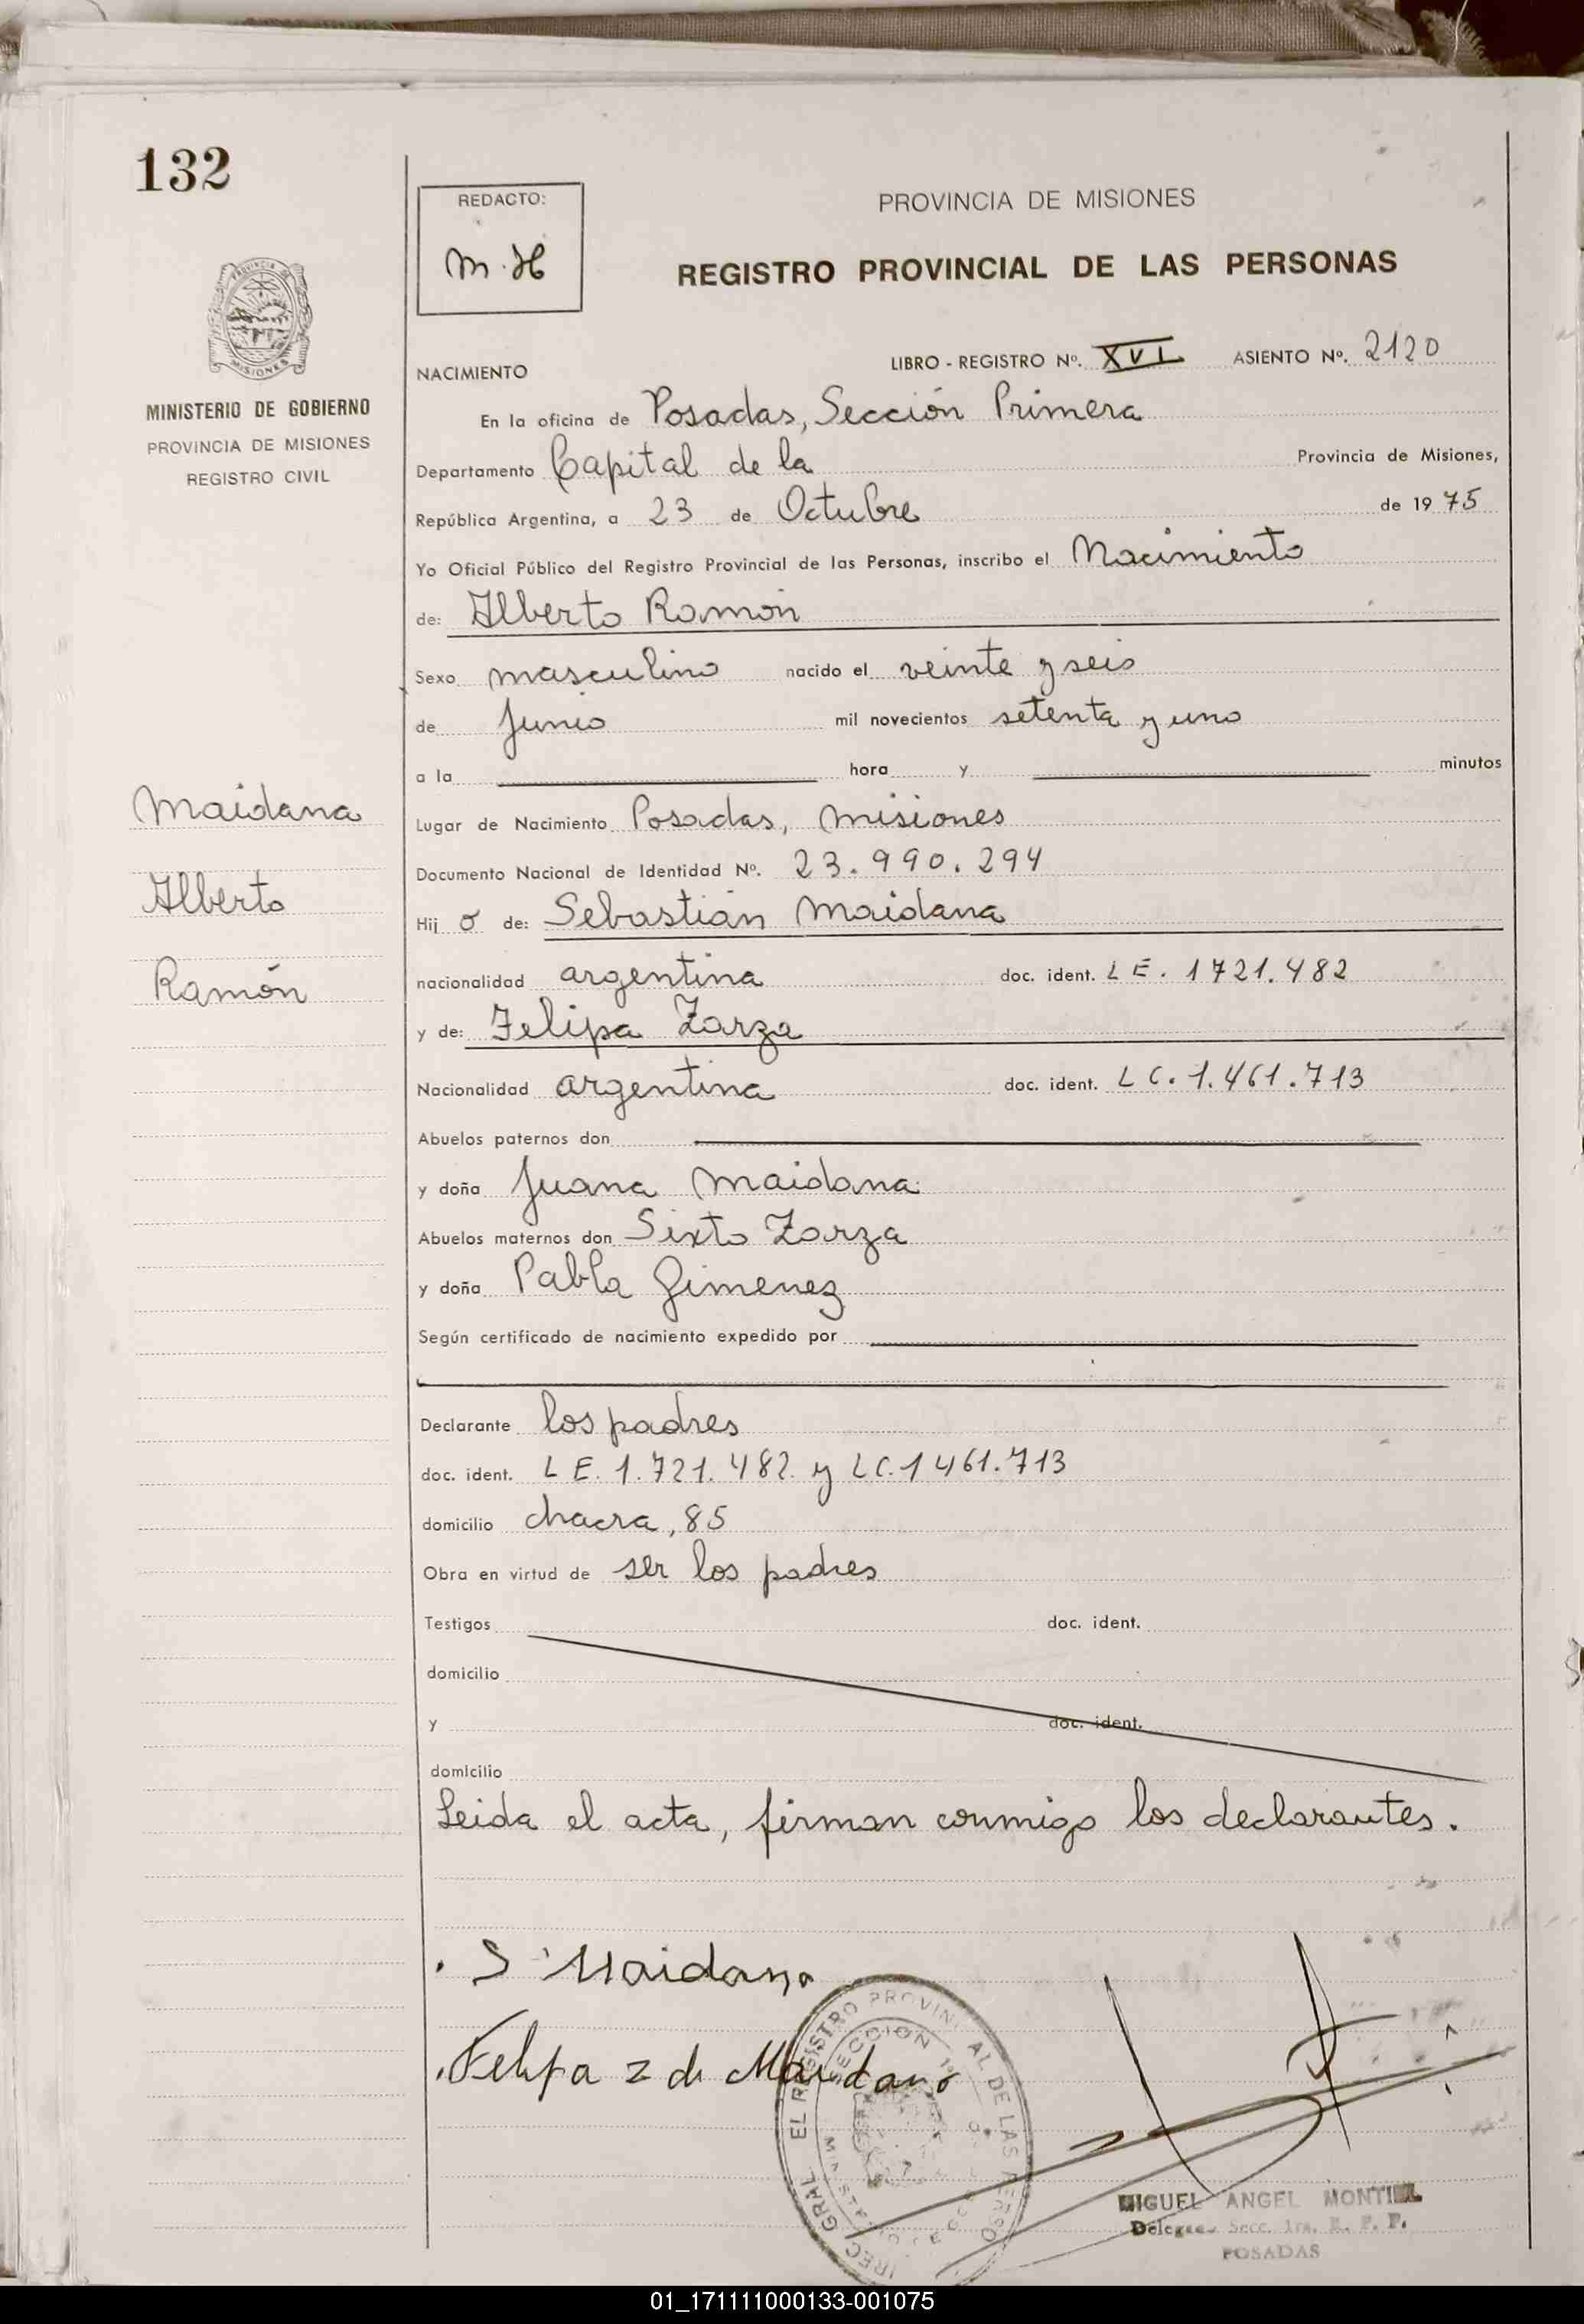 132
REDACTO:
m.H
PROVINCIA DE MISIONES
REGISTRO PROVINCIAL DE LAS PERSONAS
PROVINCIA DE
MISIONES
MINISTERIO DE GOBIERNO
PROVINCIA DE MISIONES
REGISTRO CIVIL
NACIMIENTO LIBRO - REGISTRO Nº. XVI ASIENTO Nº. 2120
En la oficina de Posadas, Sección Primera
Departamento Capital de la Provincia de Misiones,
República Argentina, a 23 de Octubre de 19 75
Yo Oficial Público del Registro Provincial de las Personas, inscribo el Nacimiento
de: Alberto Ramón
Sexo masculino nacido el veinte y seis
de Junio mil novecientos setenta y uno
a la hora y minutos
Maidana
Alberto
Ramón
Lugar de Nacimiento Posadas, misiones
Documento Nacional de Identidad Nº. 23.990.294
Hij o de: Sebastián Maidana
nacionalidad argentina doc. ident. L E. 1721.482
y de: Felipa Zarza
Nacionalidad argentina doc. ident. L C. 1.461.713
Abuelos paternos don
y doña Juana Maidana
Abuelos maternos don Sixto Zarza
y doña Pabla Gimenez
Según certificado de nacimiento expedido por
Declarante los padres
doc. ident. L E. 1.721.482 y LC.1461.713
domicilio chacra, 85
Obra en virtud de ser los padres
Testigos doc. ident.
domicilio
y doc. ident.
domicilio
Leida el acta, firman conmigo los declarantes.
S Maidana
Felipa Z de Maidana
REGISTRO PROVINCIAL DE LAS PERSO
SECCION 1ª
MIGUEL ANGEL MONTIEL
Secc. 1ra. R. P. P.
POSADAS
01_171111000133-001075